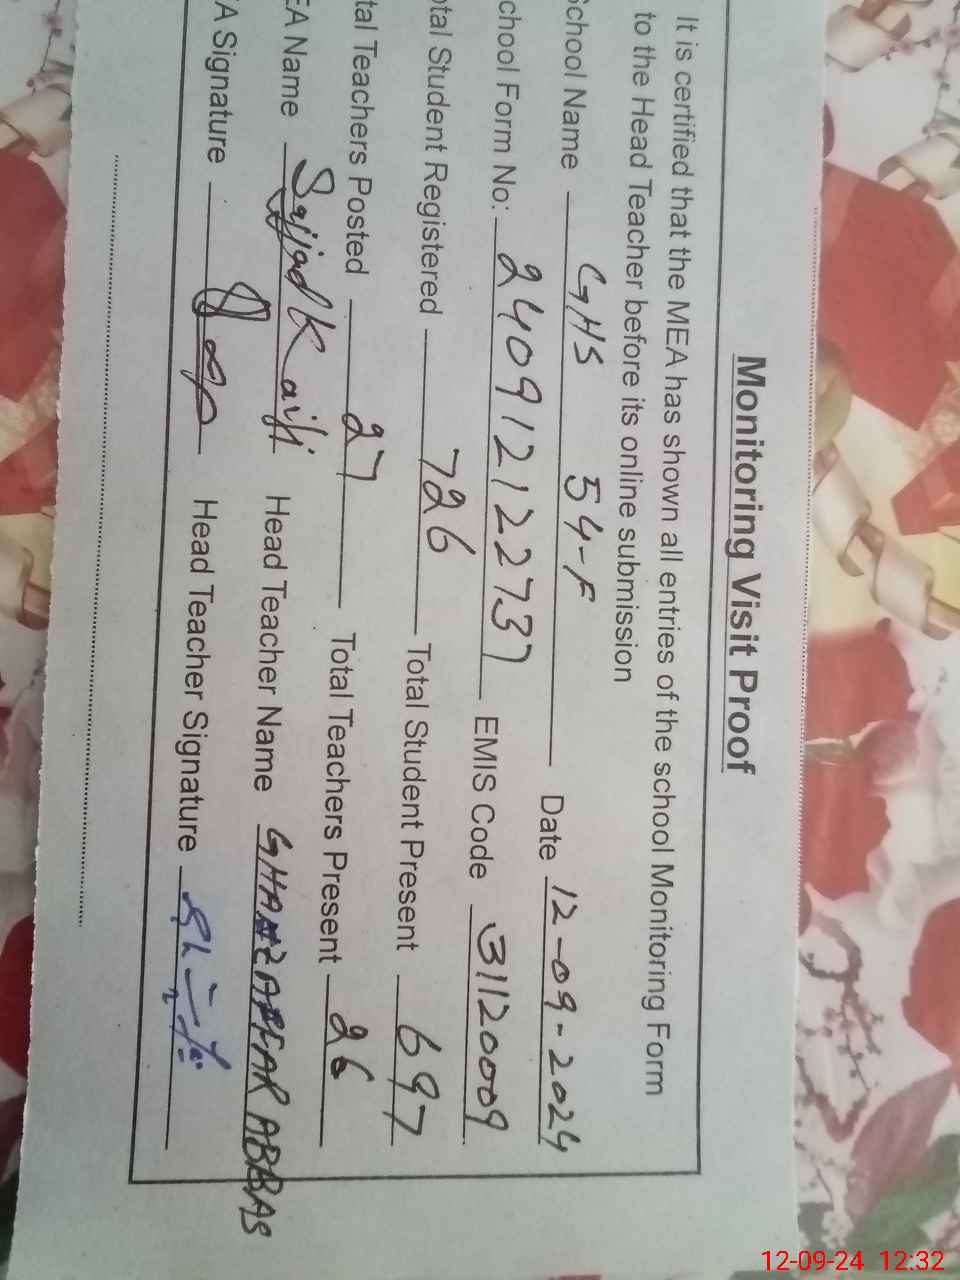 Monitoring Visit Proof
It is certified that the MEA has shown all entries of the school Monitoring Form
to the Head Teacher before its online submission
School Name GHS 54-F Date 12-09-2024
chool Form No: 24091212273 EMIS Code 31120009
otal Student Registered 726 Total Student Present 697
tal Teachers Posted 27 Total Teachers Present 26
EA Name Sajjad Kaifi Head Teacher Name GHAZAFFAR ABBAS
A Signature Head Teacher Signature
12-09-24 12:32